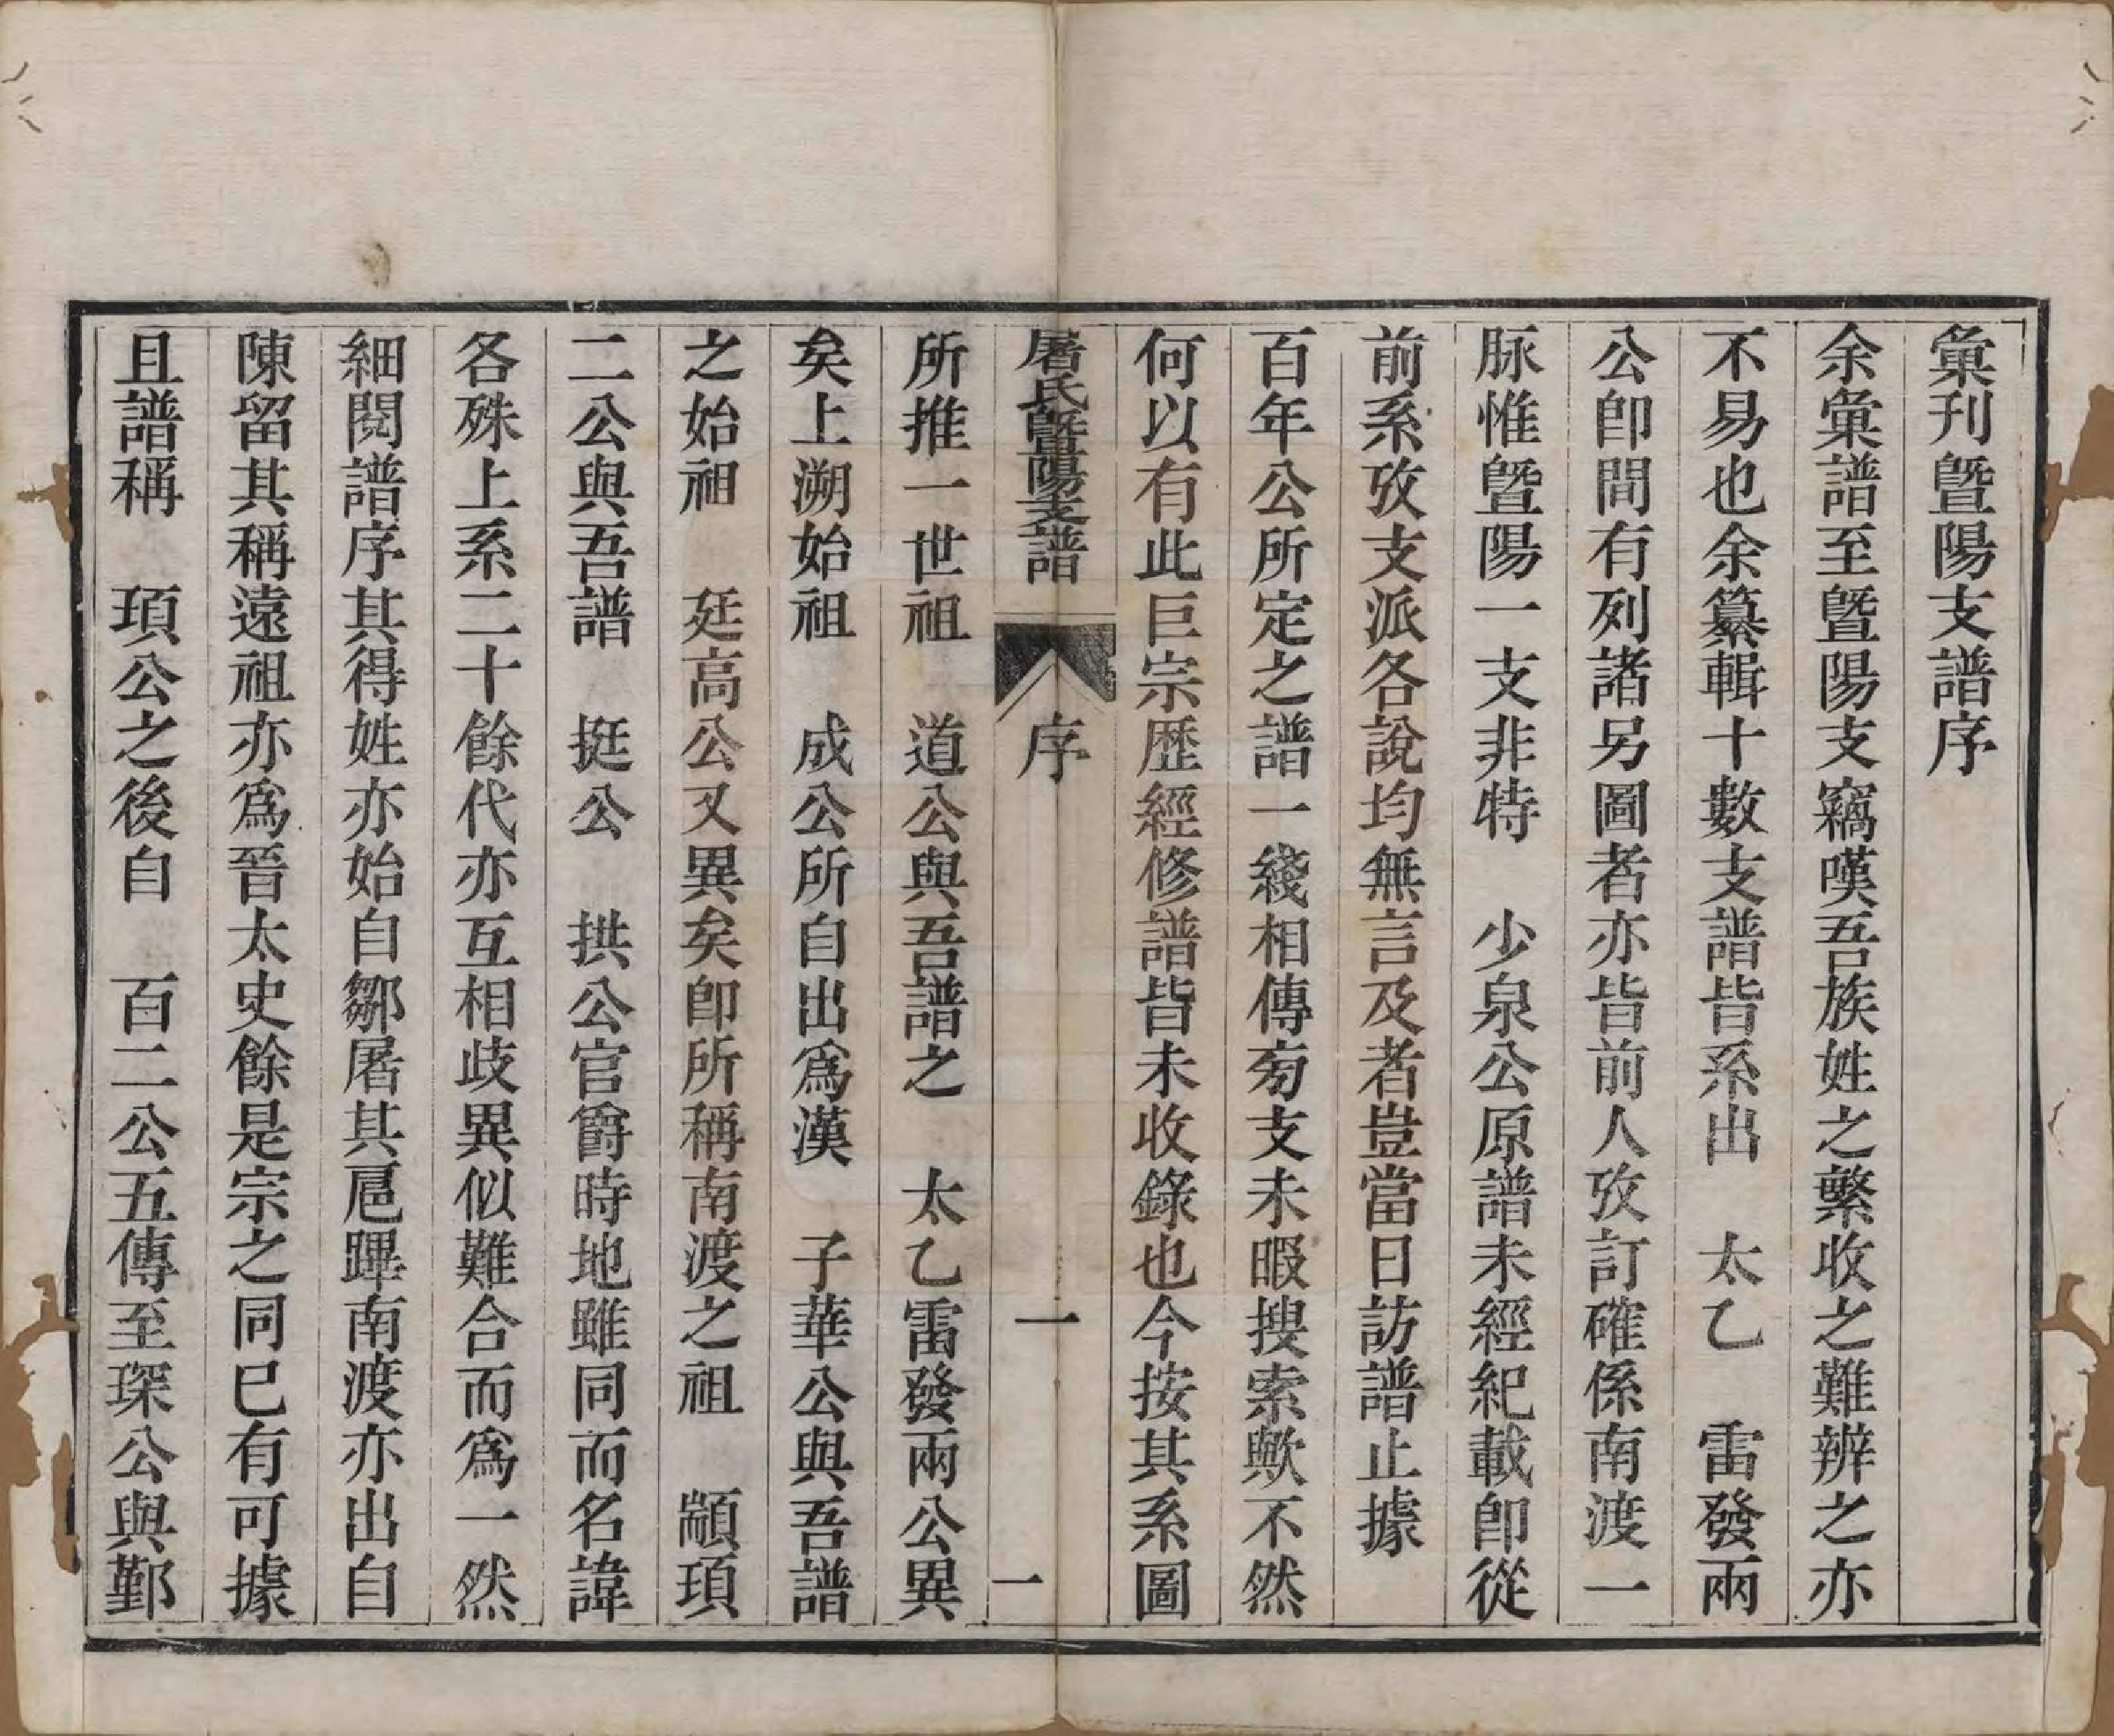 彙刊曁陽支譜序
余彙譜至曁陽支竊嘆吾族姓之繁收之難辨之亦
不易也余纂輯十數支譜皆系出　太乙　雷發兩
公卽間有列諸另圖者亦皆前人攷訂確係南渡一
脉惟曁陽一支非特　少泉公原譜未經紀載卽從
前系攷支派各說均無言及者豈當日訪譜止據
百年公所定之譜一綫相傳旁支未暇搜索歟不然
何以有此巨宗歷經修譜皆未收錄也今按其系圖
屠氏曁陽支譜　序　一　一
所推一世祖　道公與吾譜之　太乙雷發兩公異
矣上溯始祖　成公所自出爲漢　子華公與吾譜
之始祖　廷高公又異矣卽所稱南渡之祖　顓頊
二公與吾譜　挺公　拱公官爵時地雖同而名諱
各殊上系二十餘代亦互相歧異似難合而爲一然
細閱譜序其得姓亦始自鄒屠其扈蹕南渡亦出自
陳留其稱遠祖亦爲晉太史餘是宗之同已有可據
且譜稱　頊公之後自　百二公五傳至琛公與鄞